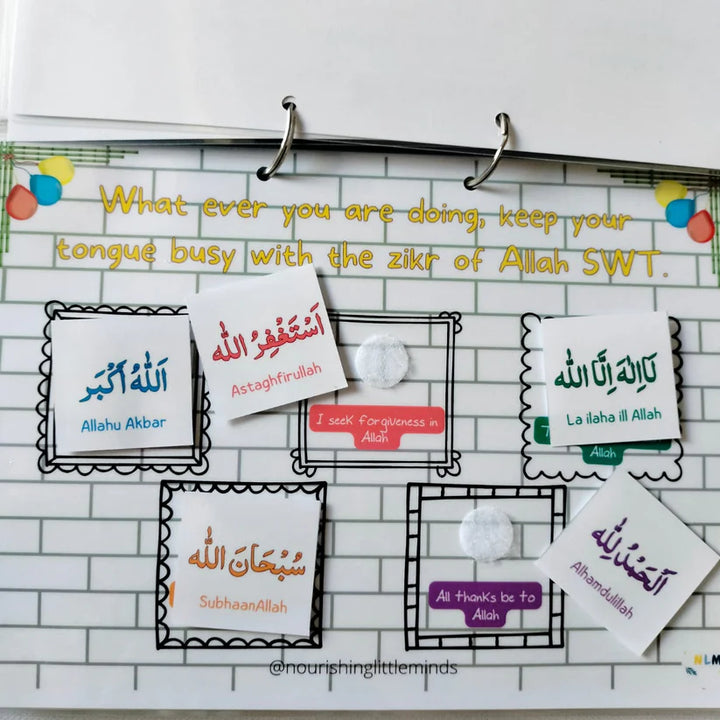 What ever you are doing, keep your
tongue busy with the zikr of Allah SWT.
اَللّٰهُ أَكْبَر
Allahu Akbar
اَسْتَغْفِرُ اللّٰه
Astaghfirullah
I seek forgiveness in
Allah
لَا اِلٰهَ اِلَّا اللّٰه
La ilaha ill Allah
Allah
سُبْحَانَ اللّٰه
SubhaanAllah
All thanks be to
Allah
اَلْحَمْدُ لِلّٰه
Alhamdulillah
@nourishinglittleminds
NLM